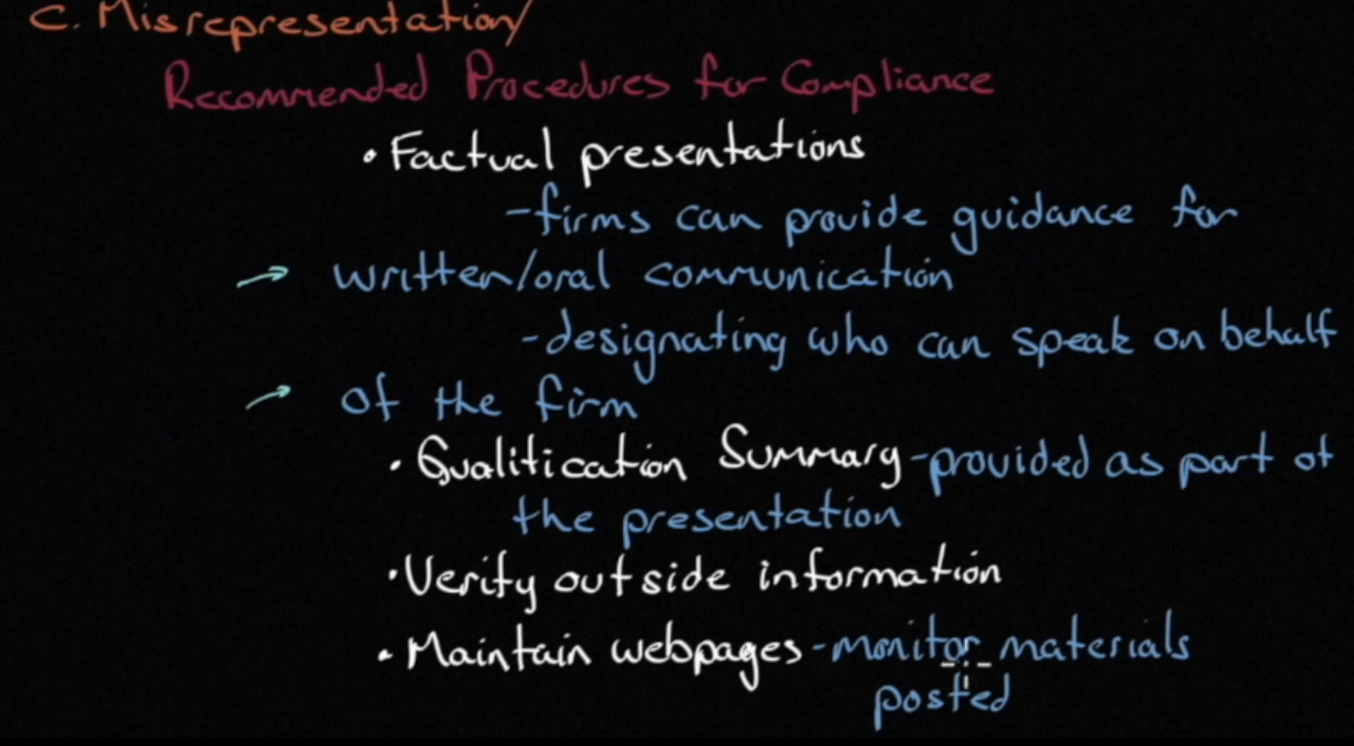 C. Misrepresentation/
Recommended Procedures for Compliance
• Factual presentations
- firms can provide guidance for
→ written/oral communication
- designating who can speak on behalf
→ of the firm
• Qualification Summary - provided as part of
the presentation
• Verify outside information
• Maintain webpages - monitor materials
posted